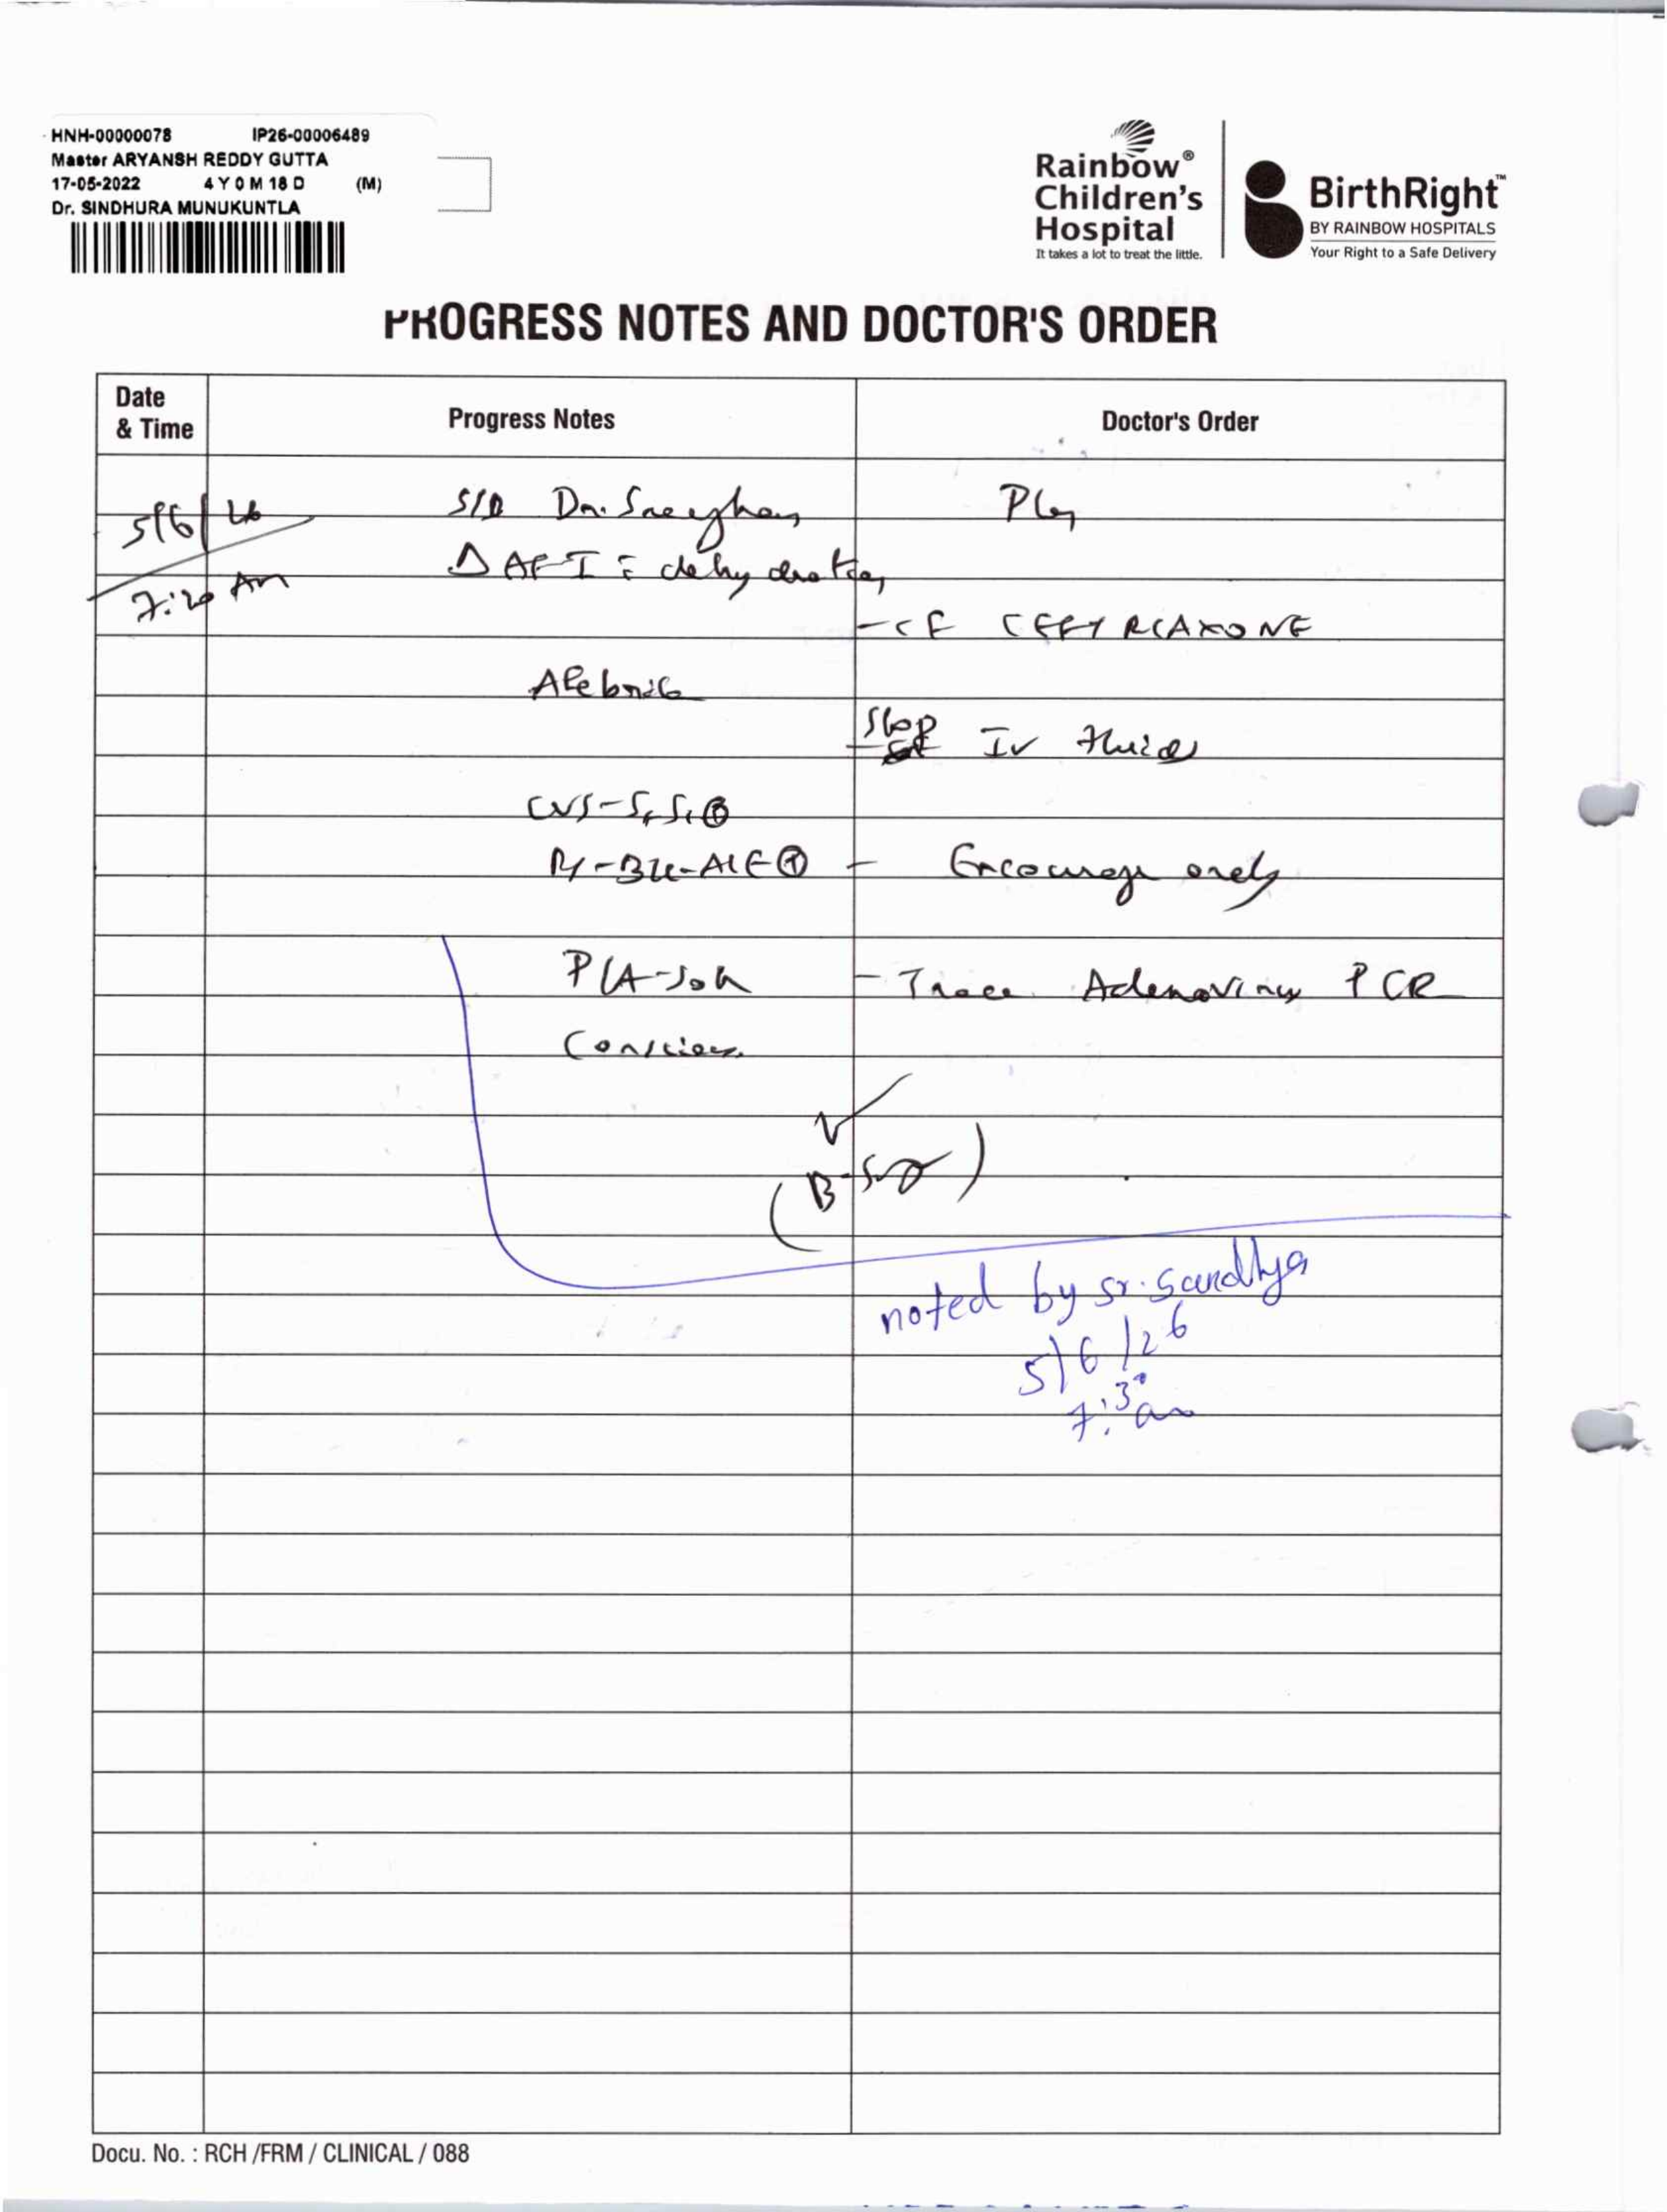 HNH-00000078 IP26-00006489
Master ARYANSH REDDY GUTTA
17-05-2022 4 Y 0 M 18 D (M)
Dr. SINDHURA MUNUKUNTLA
Rainbow®
Children's
Hospital
It takes a lot to treat the little.
BirthRight™
BY RAINBOW HOSPITALS
Your Right to a Safe Delivery
PROGRESS NOTES AND DOCTOR'S ORDER
Date
& Time
Progress Notes
Doctor's Order
5/6/26
7:20 Am
S/B Dr.
Δ AFI c̄ dehydration
Afebrile
CVS-S1S2⊕
R/-B/L-AIE⊕
P/A-Soft
Conscious
Plan
- CF CEFTRIAXONE
- Stop IV fluids
- Encourage orals
- Trace Adenovirus PCR
noted by sr. sandhya
5/6/26
7:30 am
Docu. No. : RCH /FRM / CLINICAL / 088